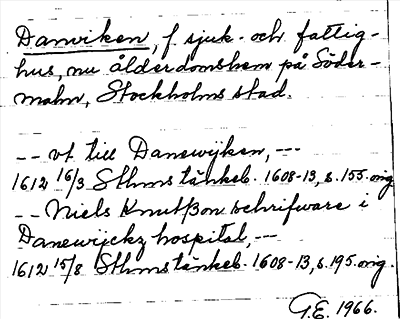 Danviken, f sjuk- och fattig-
hus, nu ålderdomshem på Söder-
malm, Stockholms stad.
-- vt till Danewijken, ---
1612 16/3 Sthms tänkeb. 1608-13, s. 155. orig.
-- Niels Knutßon schrifware i
Danewijckz hospital, --
1612 15/8 Sthms tänkeb. 1608-13, s. 195. orig.
G.E. 1966.